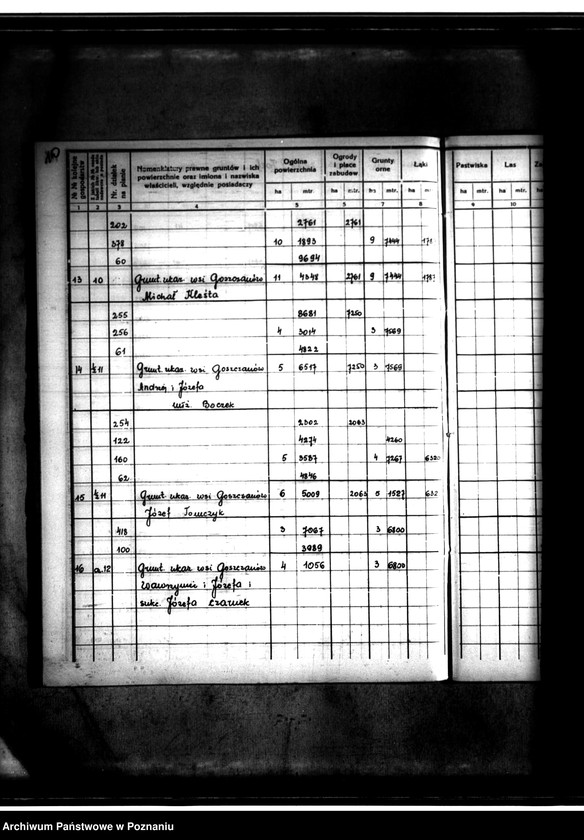 №№ kolejne gospodarstw
Nr. działek na planie
Nomenklatury prawne gruntów i ich powierzchnie oraz imiona i nazwiska właścicieli, względnie posiadaczy
Ogólna powierzchnia
Ogrody i place zabudow.
Grunty orne
Łąki
Pastwiska
Las
ha mtr. ha mtr. ha mtr. ha ha mtr. ha mtr. ha
1 2 3 4 5 6 7 8 9 10
202 2761 2761
378 10 1893 9 7444 171
60 9694
13 10 Grunt ukaz. wsi Goszczanów 11 4348 2761 9 7444
Michał Kleśta
255 8681 7250
256 4 3014 3 7569
61 4822
14 ½ 11 Grunt ukaz. wsi Goszczanów 5 6517 7250 3 7569
Andrzej i Józefa
małż. Boczek
254 2302 2063
122 4274 4260
160 5 3587 4 7267 632
62 4846
15 ½ 11 Grunt ukaz. wsi Goszczanów 6 5009 2063 5 1527 632
Józef Tomczyk
418 3 7067 3 6800
100 3989
16 a.12 Grunt ukaz. wsi Goszczanów 4 1056 3 6800
Wawrzyniec i Józefa i
sukc. Józefa
Archiwum Państwowe w Poznaniu